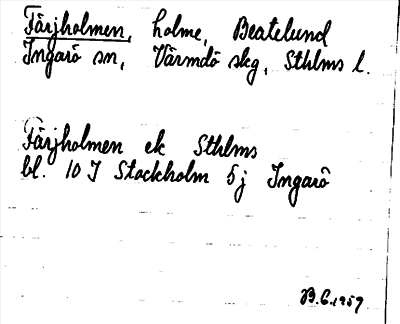 Färjholmen, holme, Beatelund
Ingarö sn, Värmdö skg, Sthlms l.
Färjholmen ek Sthlms
bl. 10 I Stockholm 5j Ingarö
B.G. 1959